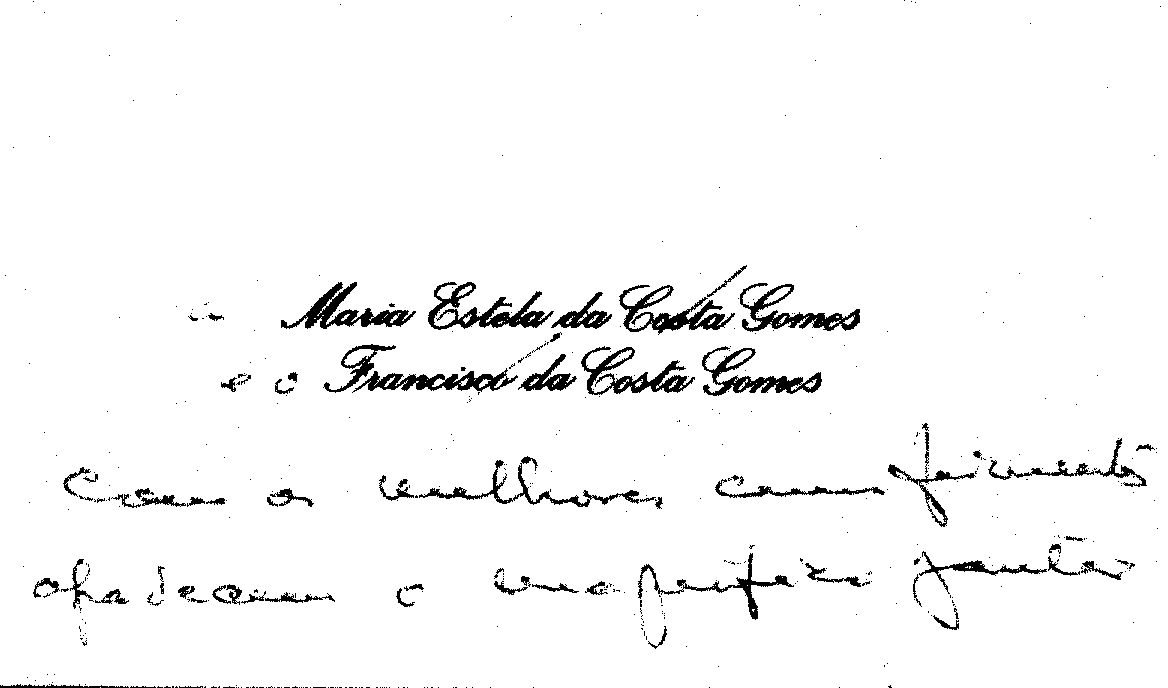 a Maria Estela da Costa Gomes
e o Francisco da Costa Gomes
Com os melhores cumprimentos
agradecem o magnífico jantar